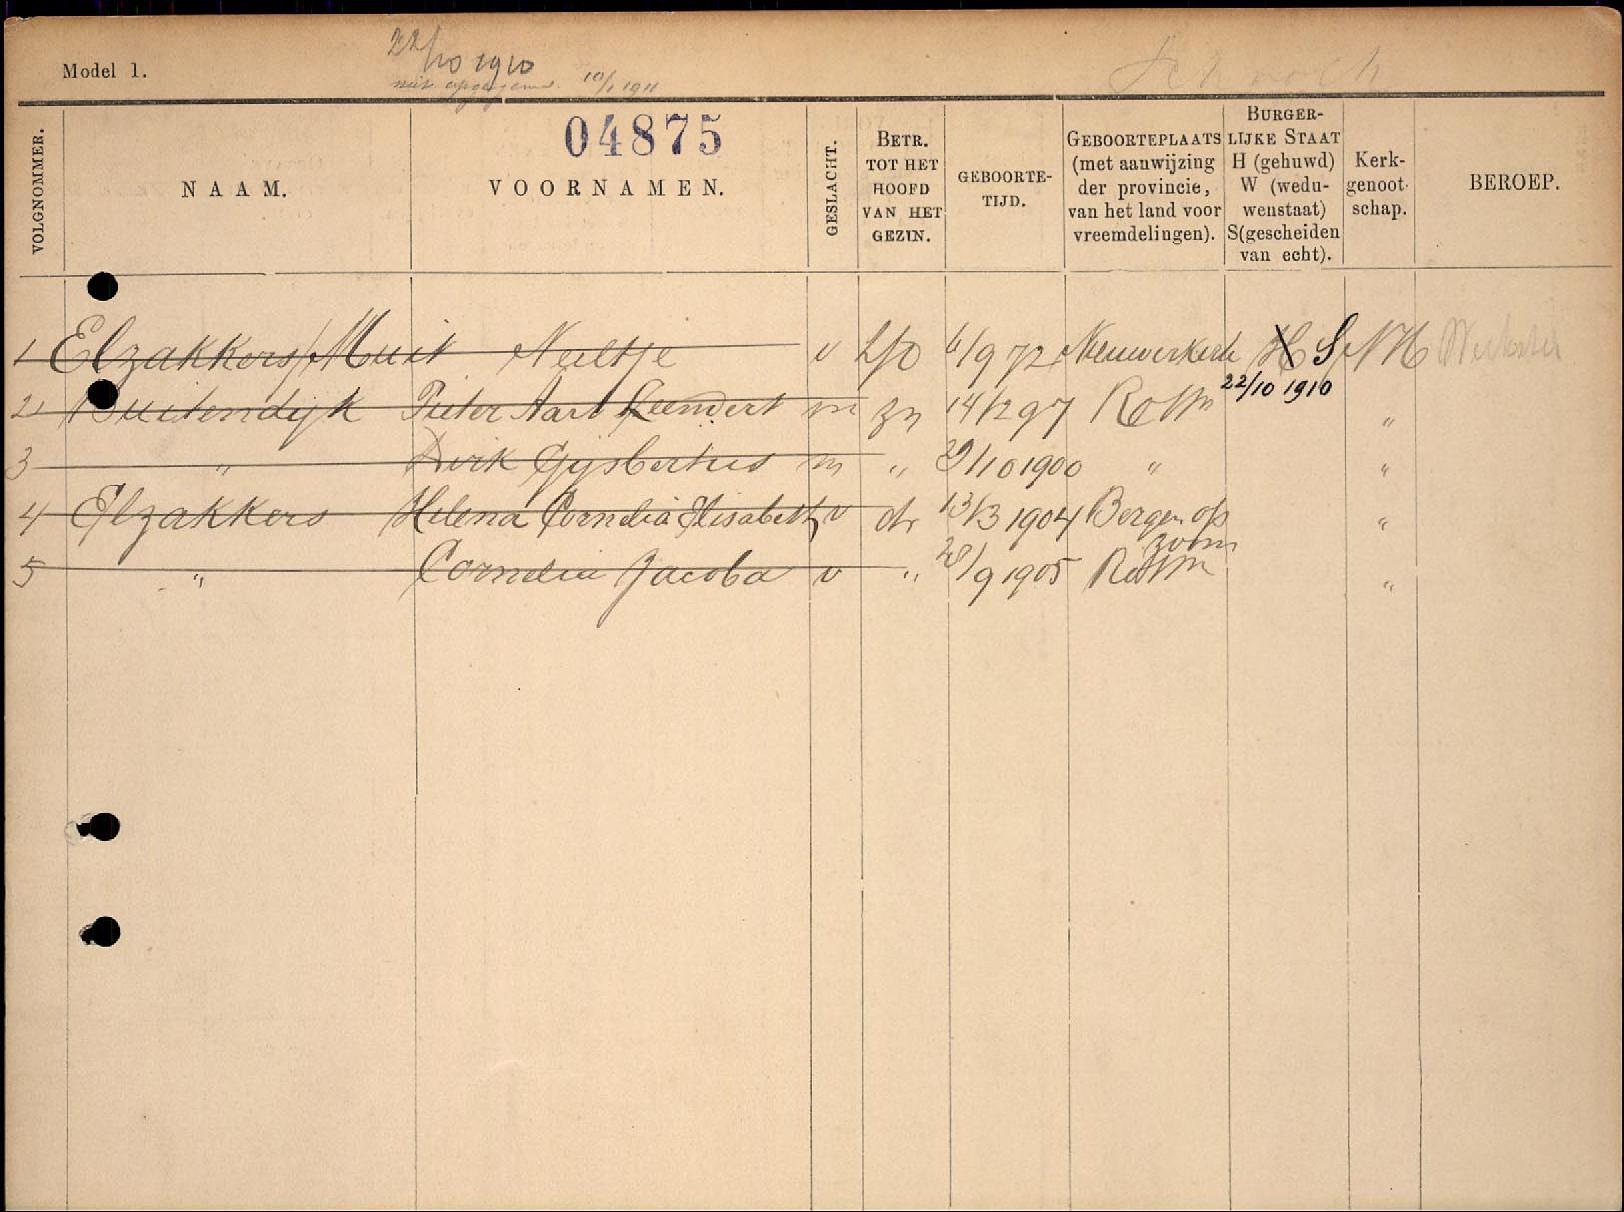 22/10 1910
Model 1.
niet opgegeven. 10/1 1911
04875
VOLGNOMMER.
NAAM.
VOORNAMEN.
GESLACHT.
BETR. TOT HET HOOFD VAN HET GEZIN.
GEBOORTE-TIJD.
GEBOORTEPLAATS (met aanwijzing der provincie, van het land voor vreemdelingen).
BURGER-LIJKE STAAT H (gehuwd) W (wedu-wenstaat) S (gescheiden van echt).
Kerk-genoot-schap.
BEROEP.
1 Elzakkers/Muit Neeltje v hfd 6/9 72 Nieuwerkerk H S NH
22/10 1910
2 Buitendijk Pieter Aart Leendert m zn 14/2 97 Rottm "
3 " Dirk Gijsbertus m " /10 1900 " "
4 Elzakkers Helena Cornelia Elisabeth v dr 13/3 1904 Bergen op zoom "
5 " Cornelia Jacoba v " 28/9 1905 Rottm "